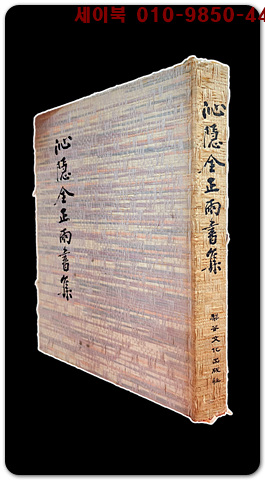 세이북 010-9850-44
沁隱金正雨書集
沁隱金正雨書集
文化出版社